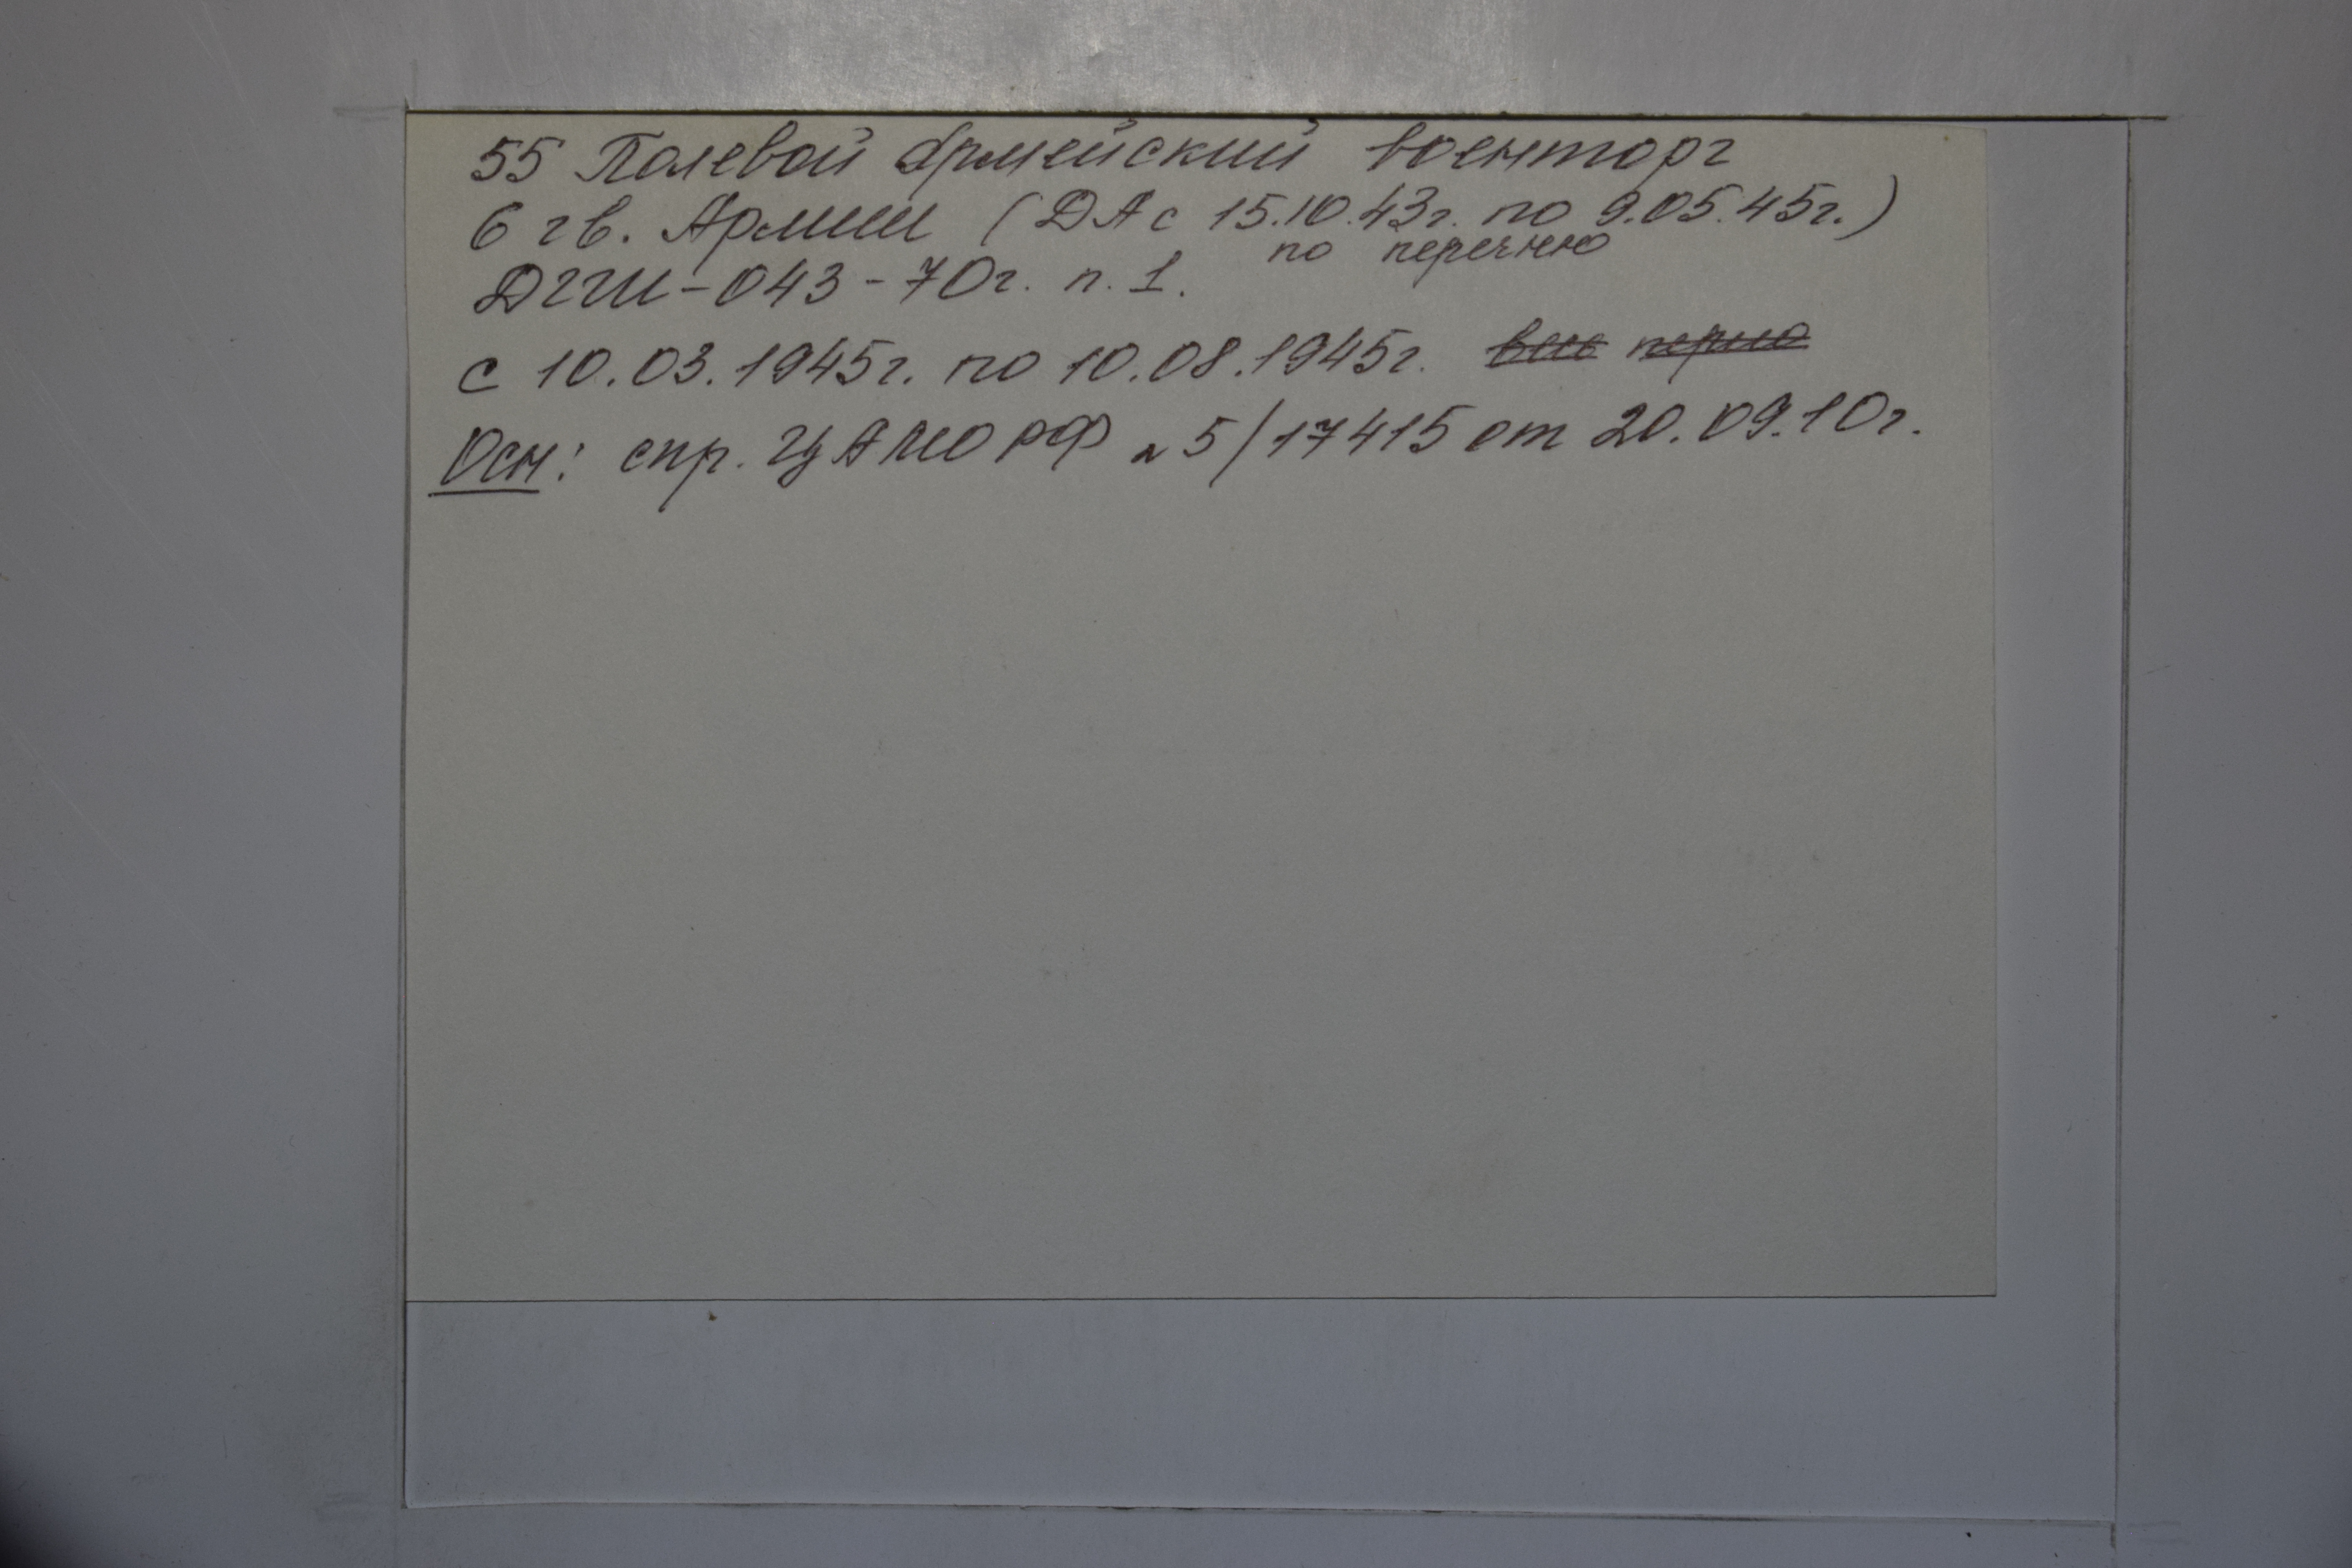 55 Полевой Армейский военторг
6 гв. Армии (ДА с 15.10.43г. по 9.05.45г.)
по перечню
ДГШ-043-70г. п. 1.
с 10.03.1945г. по 10.08.1945г.
Осн: спр. ЦАМО РФ № 5/17415 от 20.09.10г.